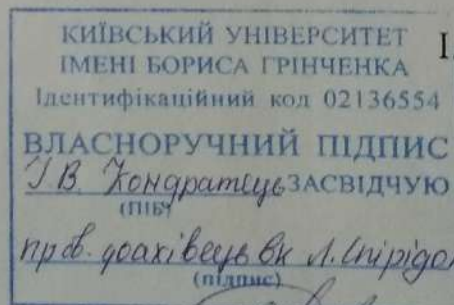 КИЇВСЬКИЙ УНІВЕРСИТЕТ
ІМЕНІ БОРИСА ГРІНЧЕНКА
Ідентифікаційний код 02136554
ВЛАСНОРУЧНИЙ ПІДПИС
І.В. Кондратець ЗАСВІДЧУЮ
(ПІБ)
пров. фахівець ВК Л. Спірідон
(підпис)